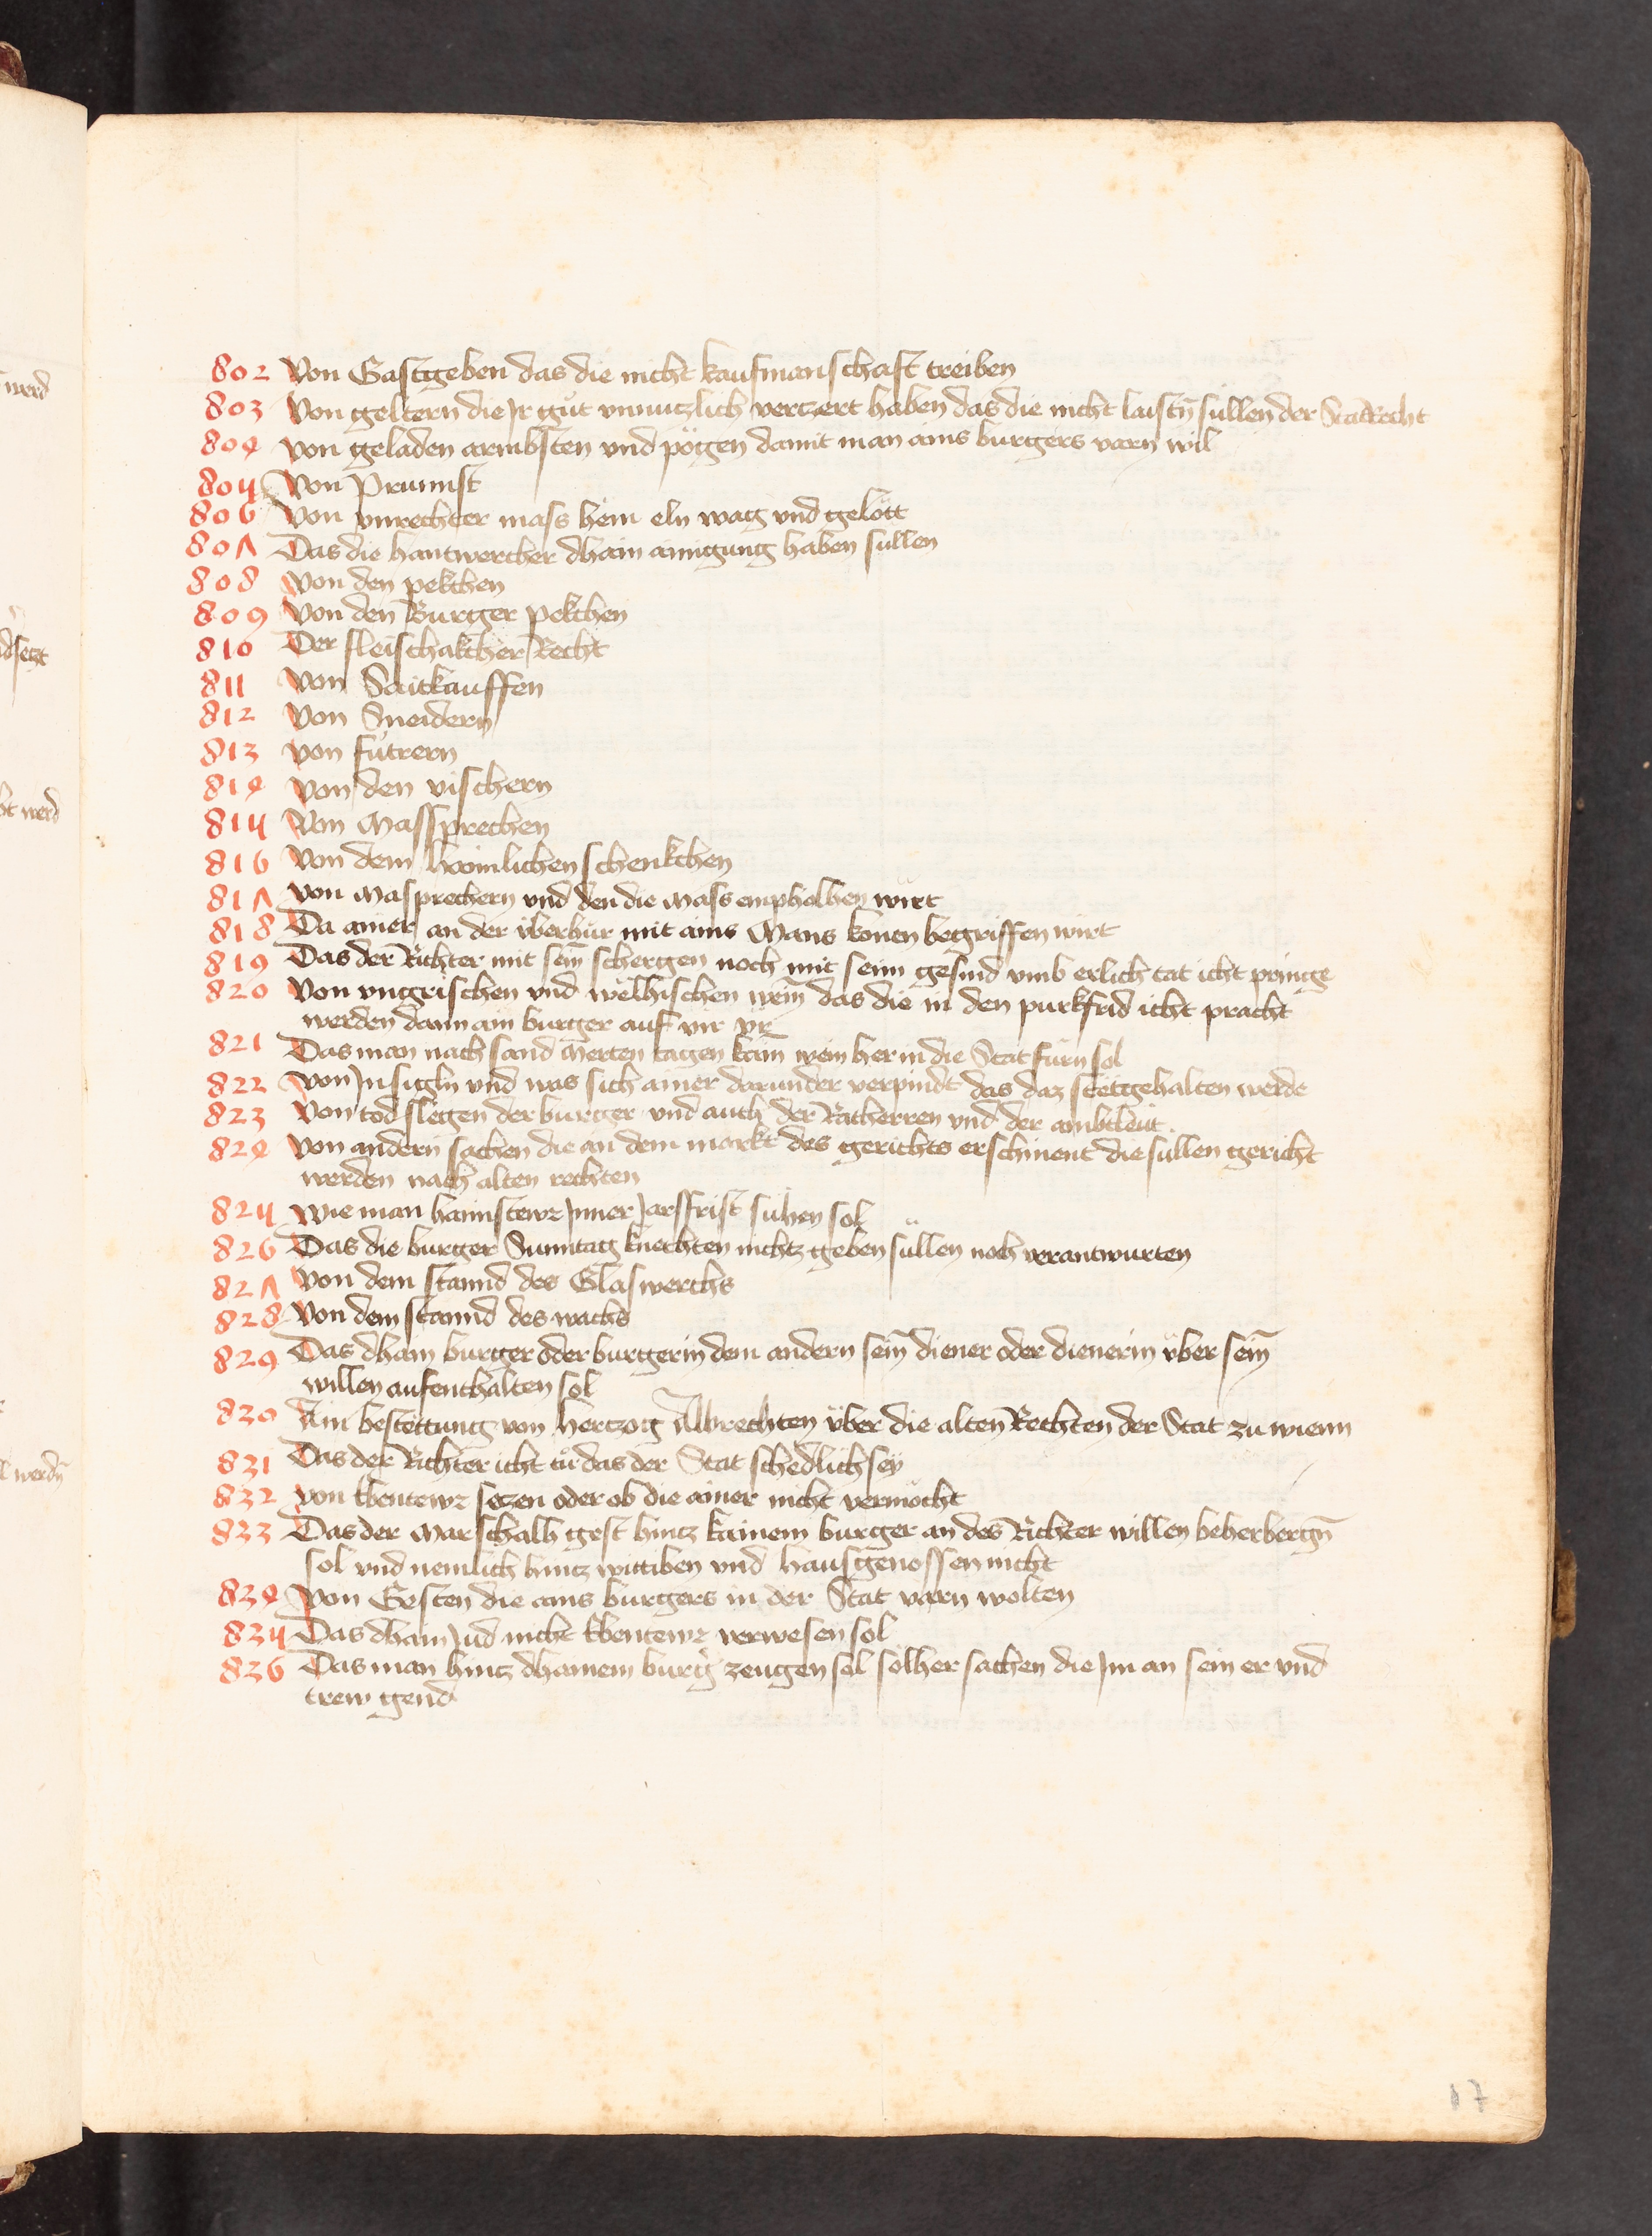 802 Von Gastgeben das die nicht kaufmanschaft treiben
803 Von geltern die Jr gůt vnnuczlich verczert haben das die nicht laistn̄ süllen der Statrecht
804 von geladen armbsten vnd pögen damit man ains burgers varn wil
805 Von Prunnst
806 Von vnrechter mass hem eln wag vnd gelött
807 Das die hantwercher dhain ainigung haben süllen
808 Von den pekchen
809 Von den Burger pekchen
810 Der fleischakcher Recht
811 Von Sautkauffen
812 Von Sneidern
813 von fůtrern
814 von den vischern
815 Von Massprechen
816 Von dem haimlichen schenkchen
817 von Masprechern vnd den die Mass empholhen wirt
818 Da ainer an der überhůr mit ains Mans konen begriffen wirt
819 Das der Richter mit sein̄ schergen noch mit seim gesind vmb erlich tat icht pringe
820 Von vngrischen vnd welhischen wein̄ das die in den purkfrid icht pracht
werden dann ain burger auf vir vr̄
821 Das man nach sand Merten tagen kain wein her in die Stat fürn sol
822 von Jnsigln vnd was sich ainer darunder verpindt das daz stett gehalten werde
823 Von todslegen der burger vnd auch der Ratherren vnd der ambtleut
824 von andern sachen die an dem markt des gerichts erschinent die süllen gericht
werden nach alten rechten
825 Wie man hannstewr Jnner Jarsfrist sůhen sol
826 Das die burger Sunntag knechten nichtz geben süllen noch verantwurten
827 Von dem stannd des Glaswerchs
828 Von dem stannd des wachs
829 Das dhain burger oder burgerin dem andern sein̄ diener oder dienerin über sein̄
willen aufenthalten sol
830 Ain bestettung von herczog Albrechten über die alten Rechten der Stat zu wienn
831 Das der Richter icht tů das der Stat schedlich sey
832 von ebentewr seczen oder ob die ainer nicht vermöcht
833 Das der Marschalh gest hincz kainem burger an des Richter willen beherbergn̄
sol vnd nemlich hincz wittiben vnd hausgenossen nicht
834 von Gesten die ains burgers in der Stat varn wolten
835 Das dhain Jud nicht ebentewr verwesen sol
836 Das man hincz dhainem burg̉ zeugen sol solher sachen die Jm an sein er vnd
trew gend
17